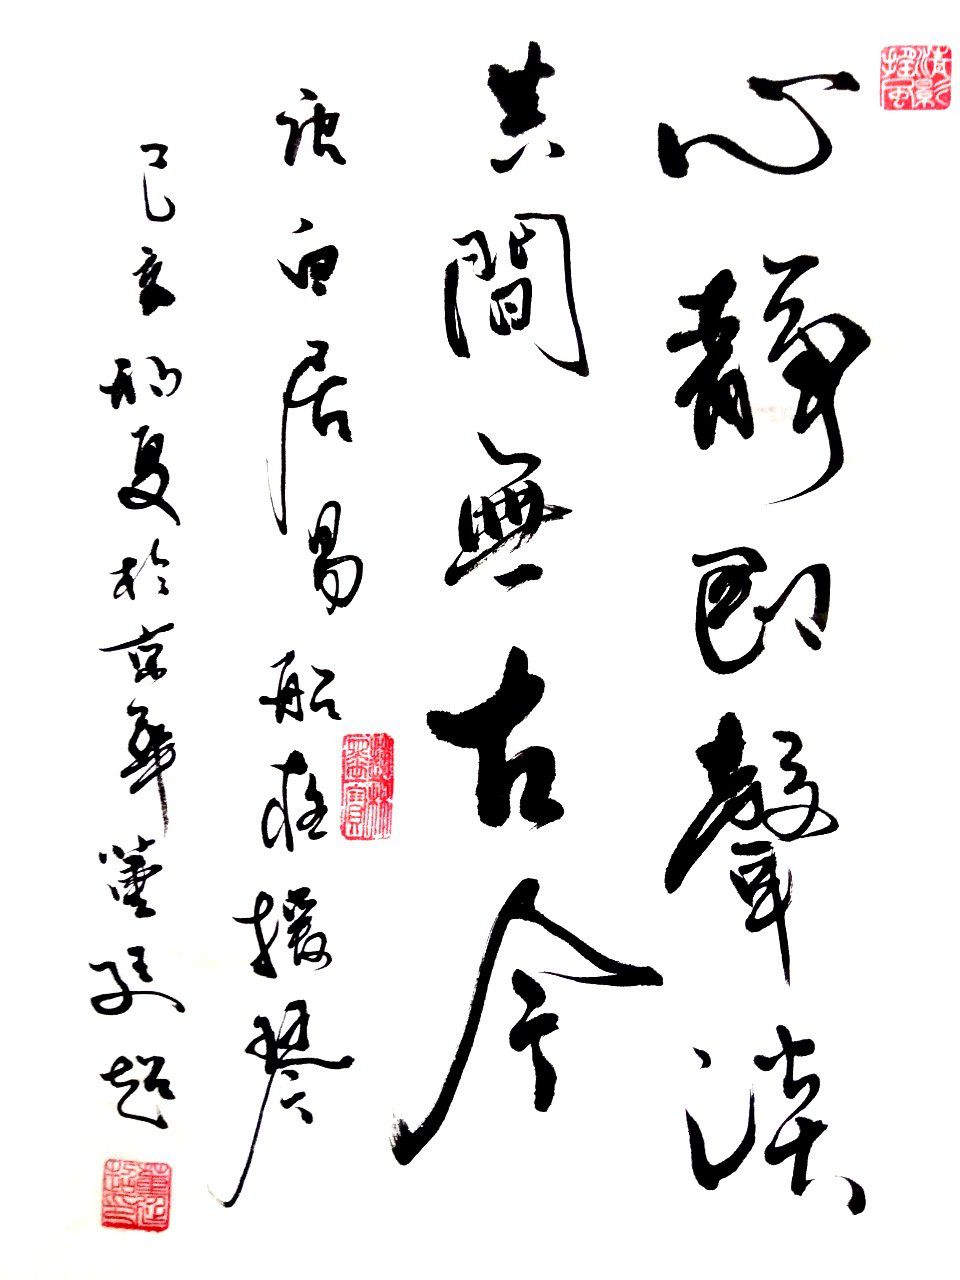 心靜即聲淡
其間無古今
唐白居易船夜援琴
己亥初夏於京華董超